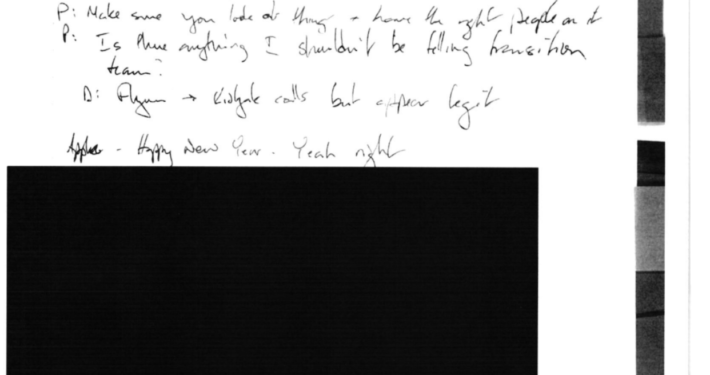 P: Make sure you look at things + have the right people on it
P: Is there anything I shouldn't be telling transition
team?
D: Flynn → Kislyak calls but appear legit
- Happy New Year. Yeah right